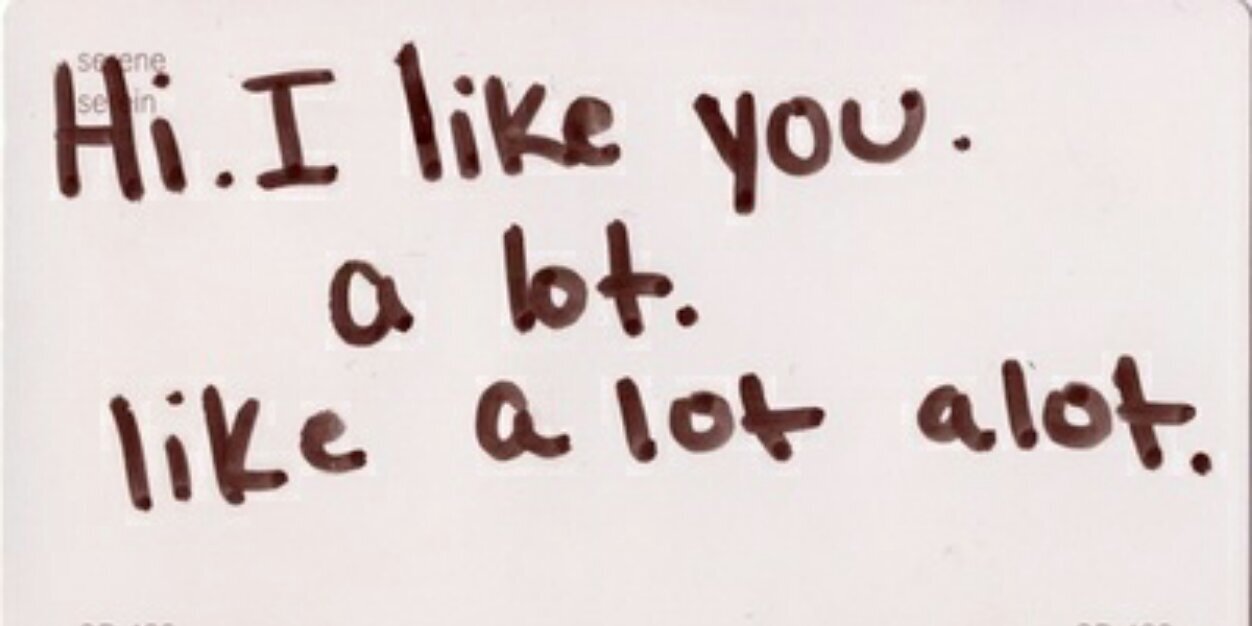 serene
serein
Hi. I like you.
a lot.
like a lot alot.